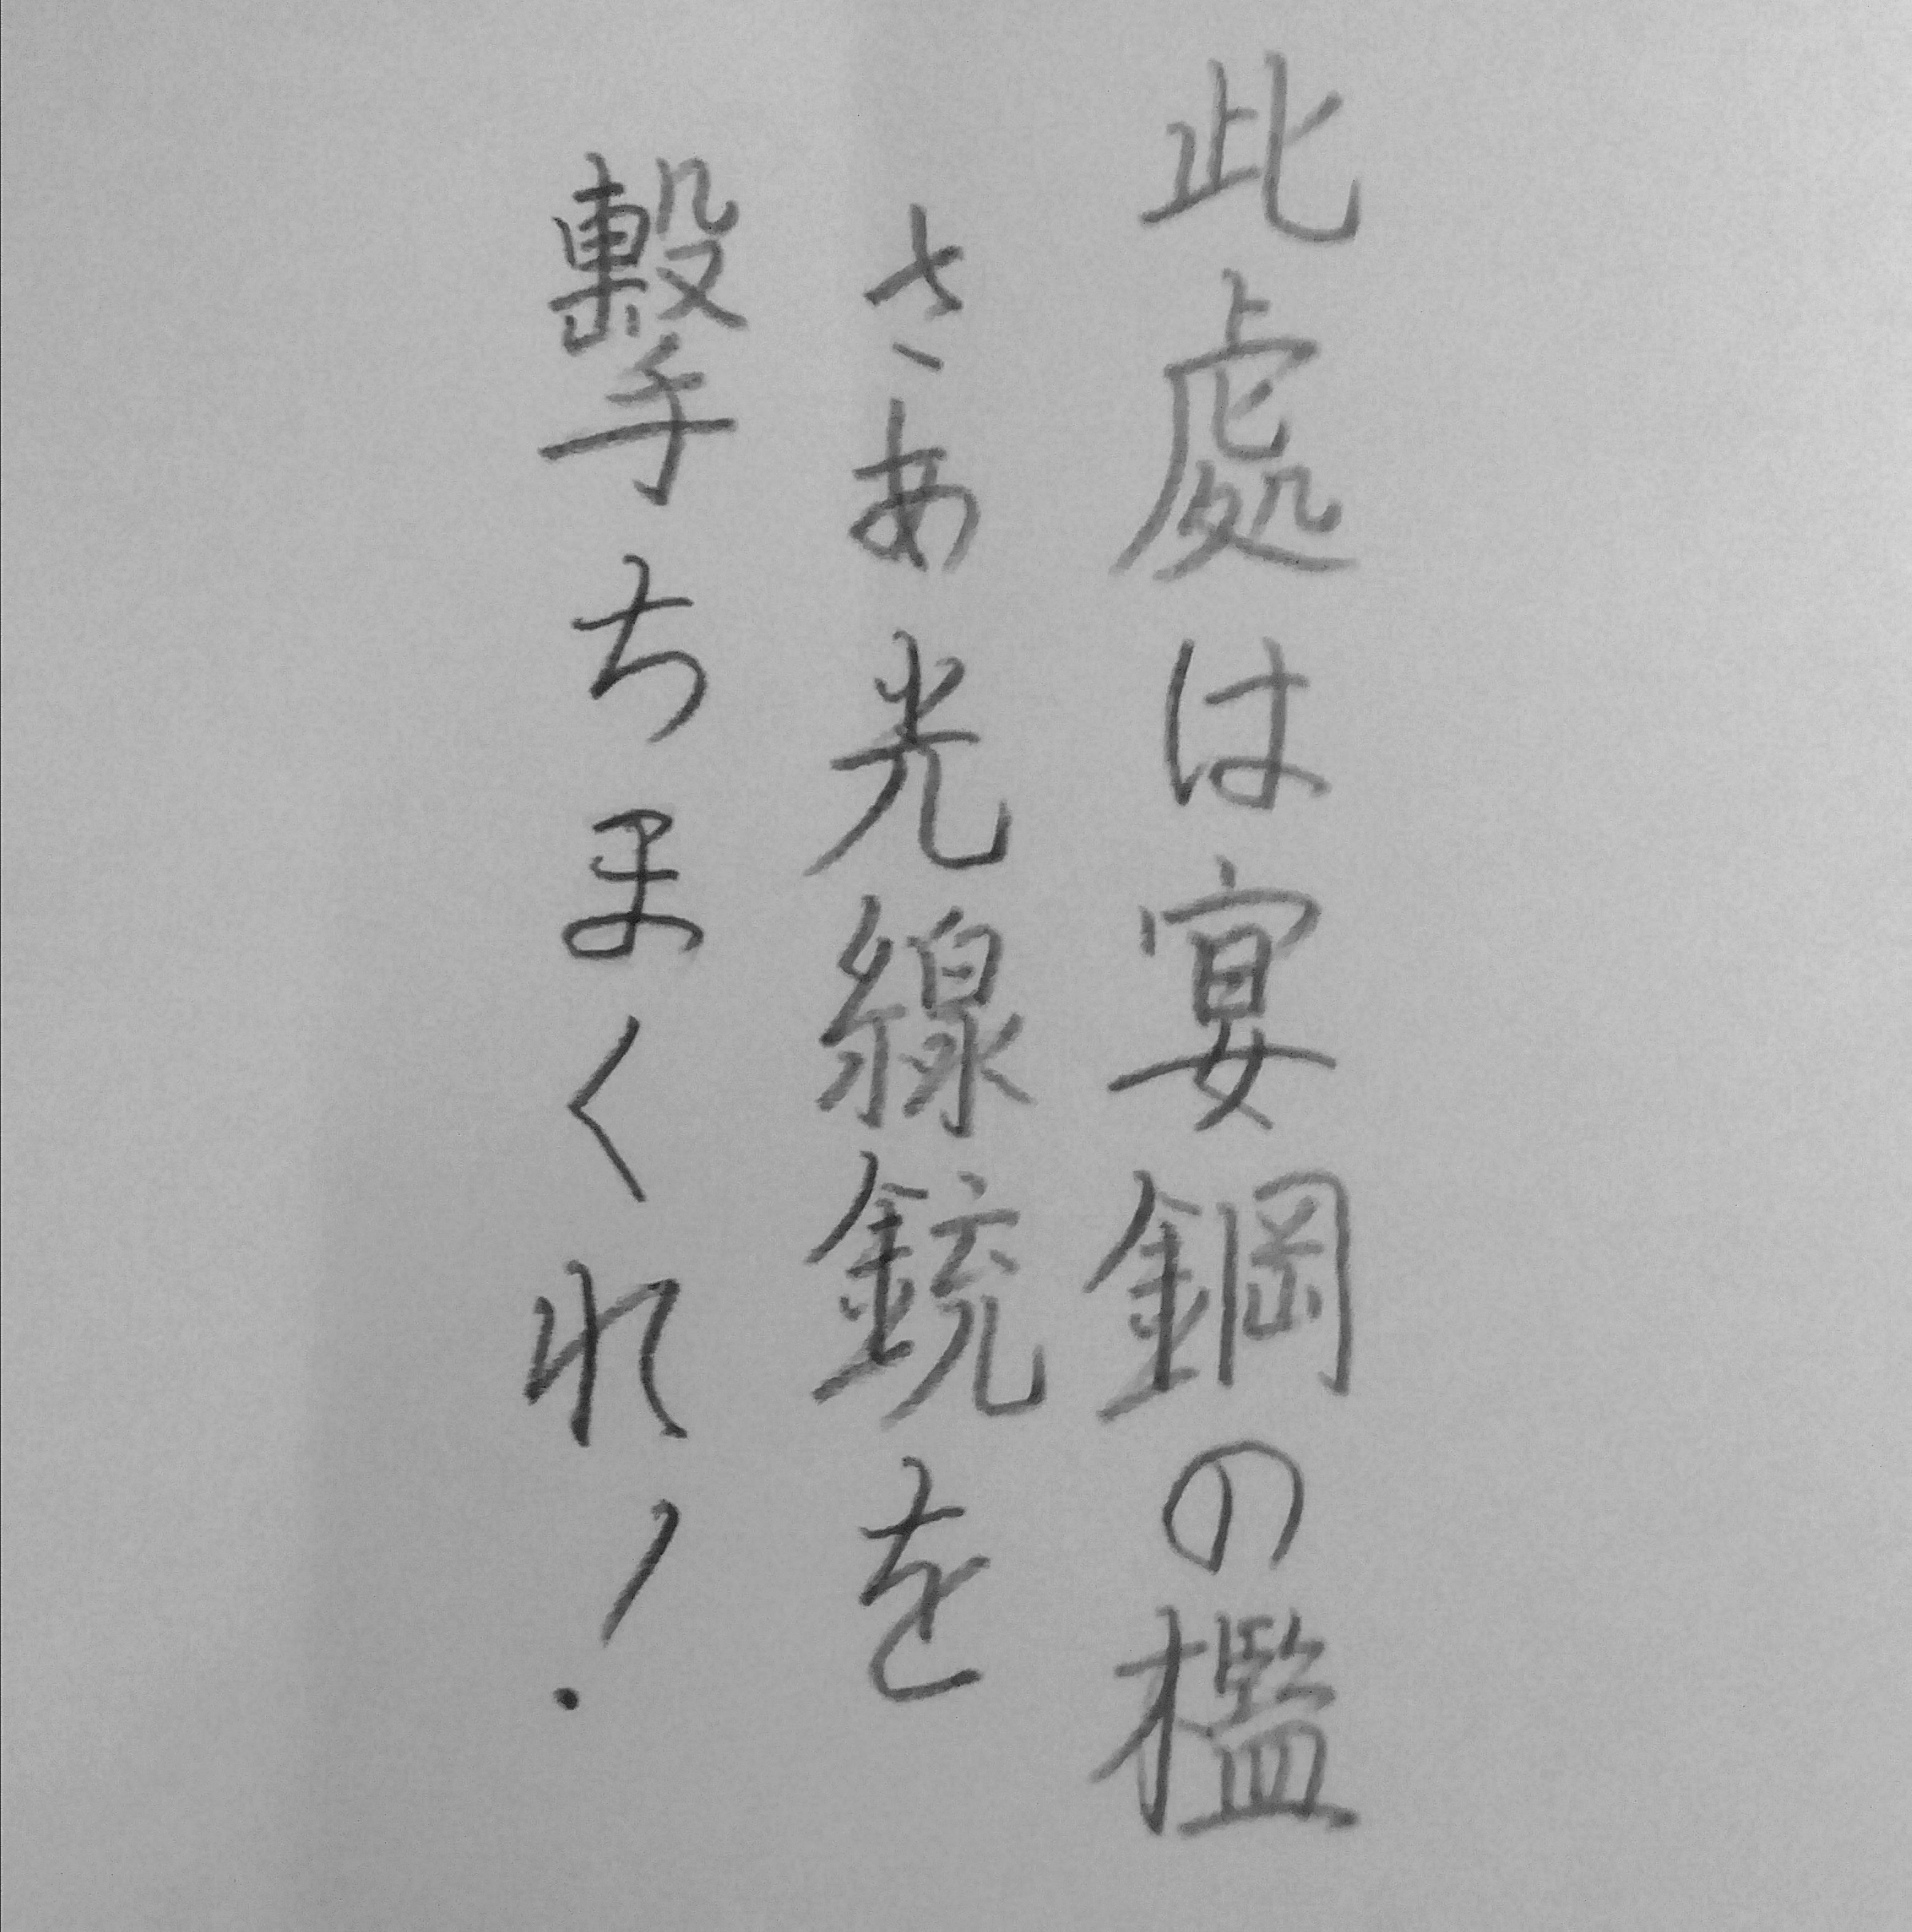 此處は宴鋼の檻
さあ光線銃を
擊ちまくれ!